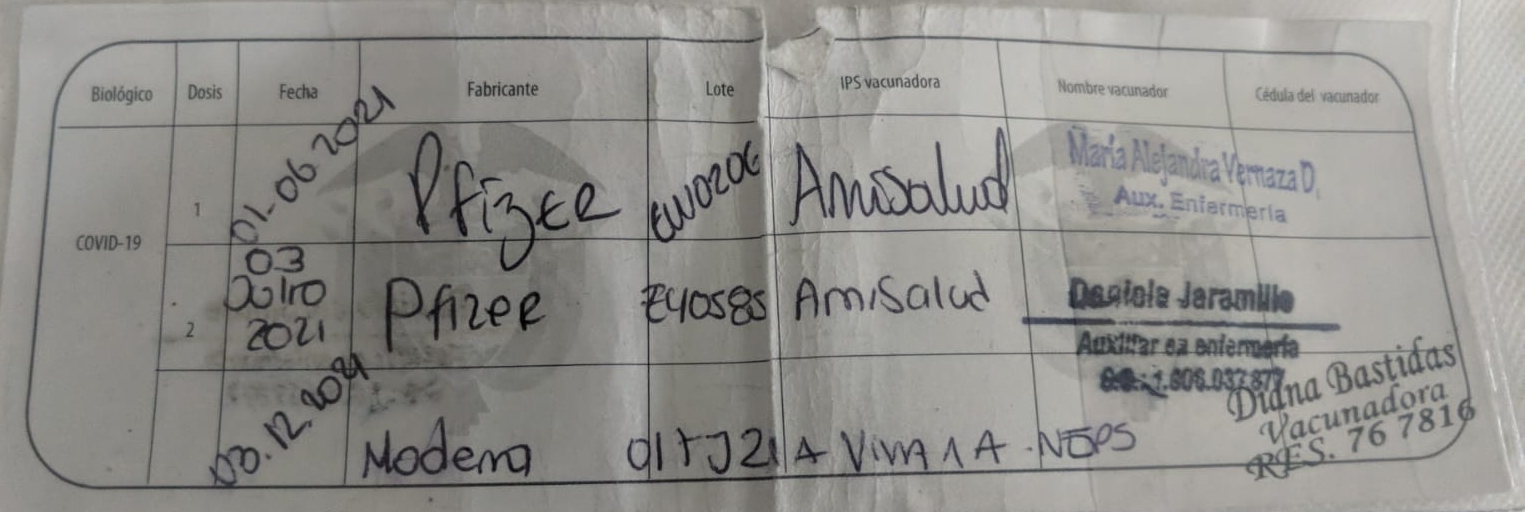 Biológico Dosis Fecha Fabricante Lote IPS vacunadora Nombre vacunador Cédula del vacunador
COVID-19
1 01-06-2021 Pfizer EW0206 AmiSalud
María Alejandra Vernaza D.
Aux. Enfermería
2 03 Julio 2021 Pfizer AmiSalud
Daniela Jaramillo
Auxiliar en enfermería
12.2021 Moderna 017J21A VIVA 1A NEPS
Diana Bastidas
Vacunadora
RES. 76 7816